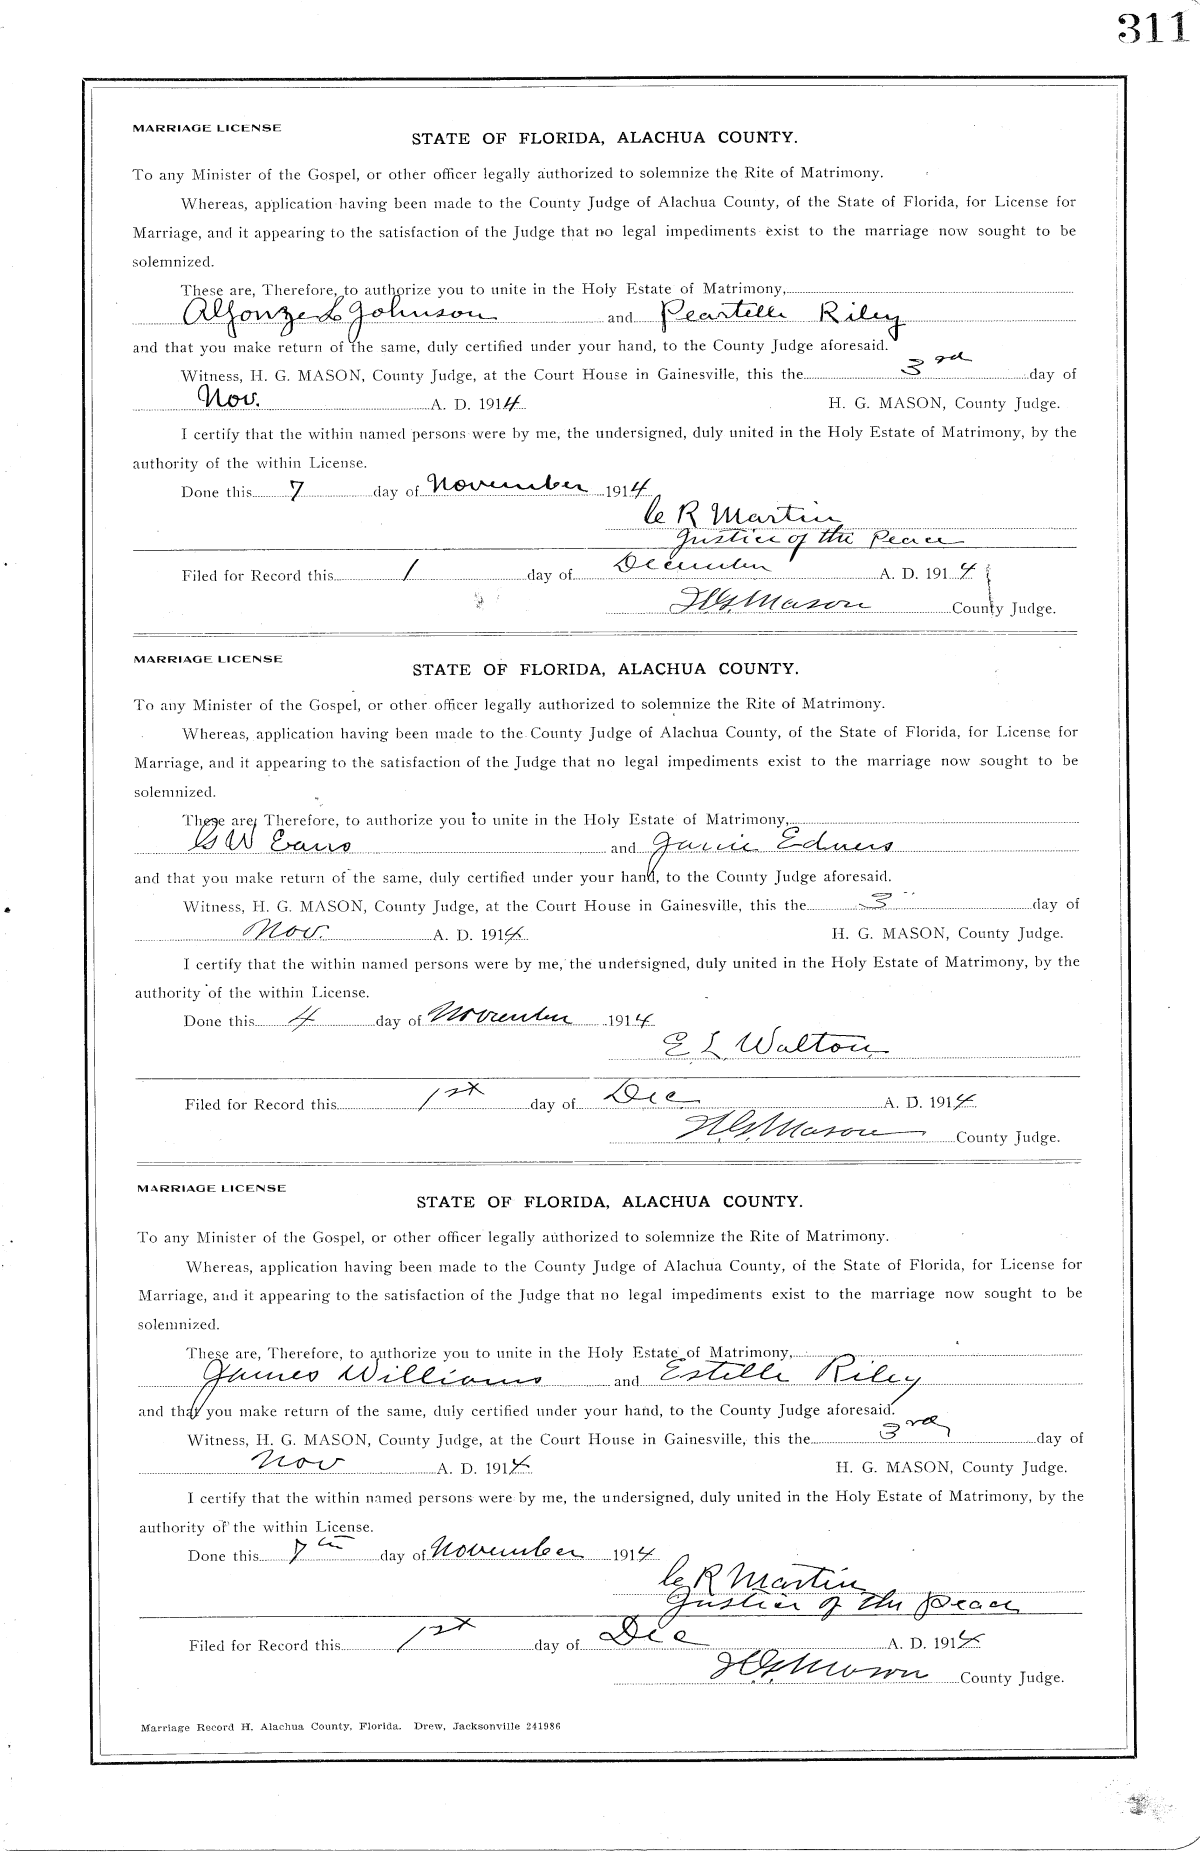 311
MARRIAGE LICENSE
STATE OF FLORIDA, ALACHUA COUNTY.
To any Minister of the Gospel, or other officer legally authorized to solemnize the Rite of Matrimony.
Whereas, application having been made to the County Judge of Alachua County, of the State of Florida, for License for
Marriage, and it appearing to the satisfaction of the Judge that no legal impediments exist to the marriage now sought to be
solemnized.
These are, Therefore, to authorize you to unite in the Holy Estate of Matrimony,
Alfonze L Johnson and Peartelle Riley
and that you make return of the same, duly certified under your hand, to the County Judge aforesaid.
Witness, H. G. MASON, County Judge, at the Court House in Gainesville, this the 3rd day of
Nov. A. D. 1914 H. G. MASON, County Judge.
I certify that the within named persons were by me, the undersigned, duly united in the Holy Estate of Matrimony, by the
authority of the within License.
Done this 7 day of November 1914
C R Martin
Justice of the Peace
Filed for Record this 1 day of December A. D. 1914
H G Mason County Judge.
MARRIAGE LICENSE
STATE OF FLORIDA, ALACHUA COUNTY.
To any Minister of the Gospel, or other officer legally authorized to solemnize the Rite of Matrimony.
Whereas, application having been made to the County Judge of Alachua County, of the State of Florida, for License for
Marriage, and it appearing to the satisfaction of the Judge that no legal impediments exist to the marriage now sought to be
solemnized.
These are, Therefore, to authorize you to unite in the Holy Estate of Matrimony,
G W Evans and Janie
and that you make return of the same, duly certified under your hand, to the County Judge aforesaid.
Witness, H. G. MASON, County Judge, at the Court House in Gainesville, this the 3 day of
Nov. A. D. 1914 H. G. MASON, County Judge.
I certify that the within named persons were by me, the undersigned, duly united in the Holy Estate of Matrimony, by the
authority of the within License.
Done this 4 day of November 1914
E L Walton
Filed for Record this 1st day of Dec A. D. 1914
H. G. Mason County Judge.
MARRIAGE LICENSE
STATE OF FLORIDA, ALACHUA COUNTY.
To any Minister of the Gospel, or other officer legally authorized to solemnize the Rite of Matrimony.
Whereas, application having been made to the County Judge of Alachua County, of the State of Florida, for License for
Marriage, and it appearing to the satisfaction of the Judge that no legal impediments exist to the marriage now sought to be
solemnized.
These are, Therefore, to authorize you to unite in the Holy Estate of Matrimony,
James Williams and Estelle Riley
and that you make return of the same, duly certified under your hand, to the County Judge aforesaid.
Witness, H. G. MASON, County Judge, at the Court House in Gainesville, this the 3rd day of
Nov A. D. 1914 H. G. MASON, County Judge.
I certify that the within named persons were by me, the undersigned, duly united in the Holy Estate of Matrimony, by the
authority of the within License.
Done this 7th day of November 1914
C R Martin
Justice of the peace
Filed for Record this 1st day of Dec A. D. 1914
H. G. Mason County Judge.
Marriage Record H. Alachua County, Florida. Drew, Jacksonville 241986